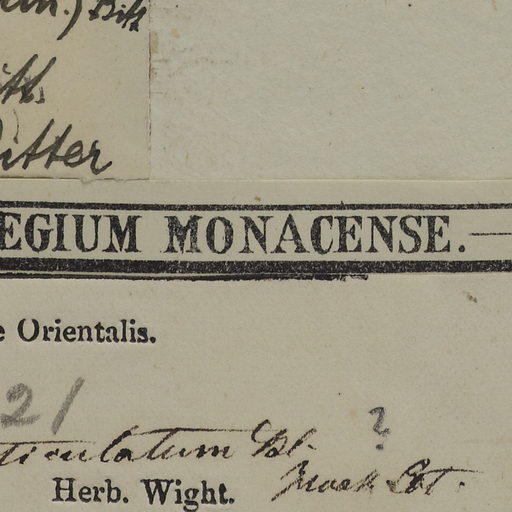 Bitt
Bitter
EGIUM MONACENSE.
e Orientalis.
21
ticulatum Bl. ?
Herb. Wight.